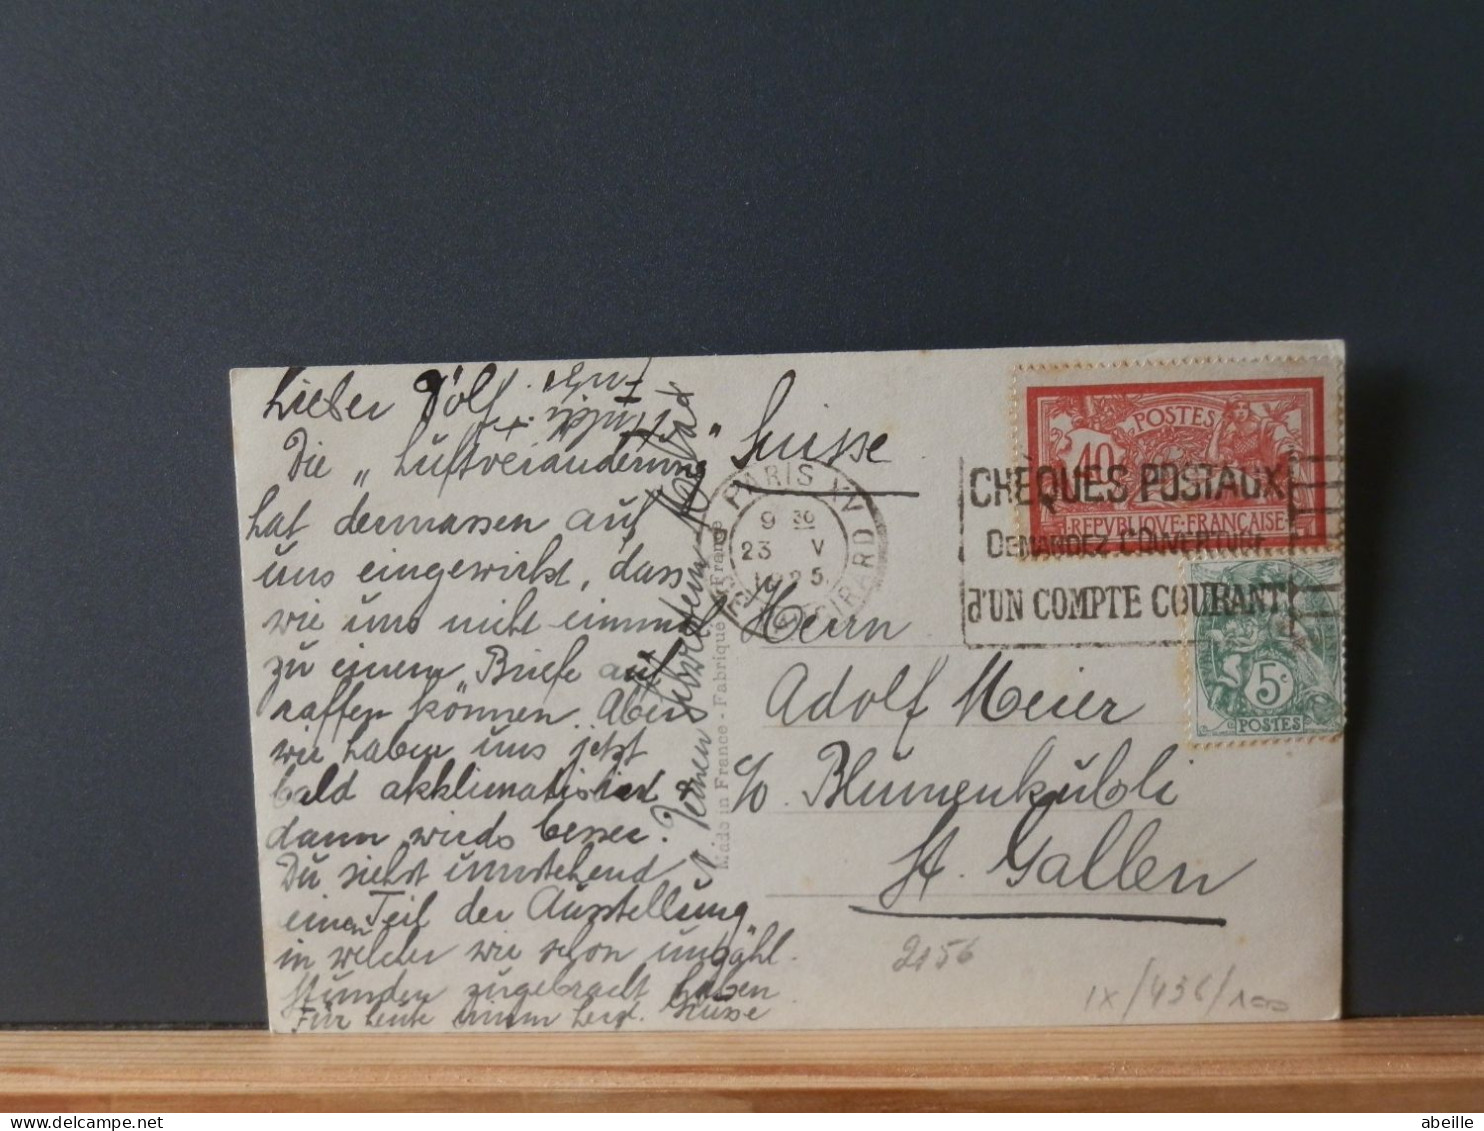 Lieber Dölf
Die „Luftveränderung"
hat dermassen auf
uns eingewirkt, dass
wir uns nicht einmal
zu einem Briefe auf
raffen können. Aber
wir haben uns jetzt
bald akklimatisiert &
dann wirds besser.
Du siehst umstehend
einen Teil der Ausstellung
in welcher wir schon unzähl.
Stunden zugebracht haben
Für heute herzl. Grüsse
Suisse
PARIS XV
9 30
23 V
1925
R. VAUGIRARD
POSTES
40
REPVBLIQVE FRANÇAISE
CHEQUES POSTAUX
DEMANDEZ L'OUVERTURE
d'UN COMPTE COURANT
5c
POSTES
Made in France - Fabriqué en France
Herrn
Adolf Meier
c/o. Blumenkübli
St. Gallen
2156
IX/436/100
abeille